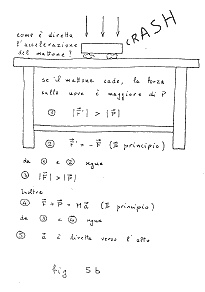 come è diretta
l'accelerazione
del mattone?
CRASH
se il mattone cade, la forza
sulle uova è maggiore di P
① |F'| > |P|
② F' = - F (III principio)
da ① e ② segue
③ |F| > |P|
Inoltre
④ F + P = M a (II principio)
da ③ e ④ segue
⑤ a è diretta verso l'alto
fig 5b